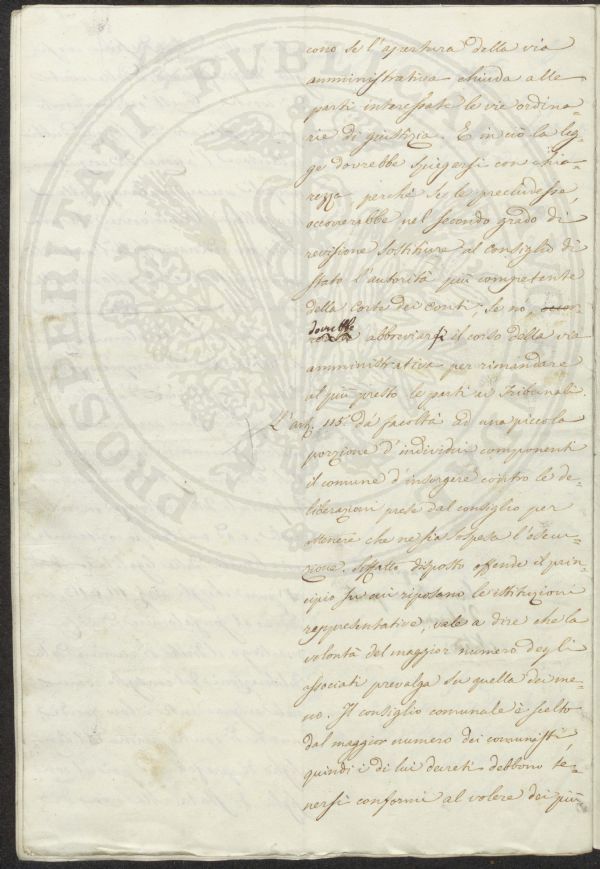 cono se l'apertura della via
amministrativa chiuda alle
parti interessate le vie ordina=
rie di giustizia. E in ciò la leg=
ge dovrebbe spiegarsi con chia=
rezza perchè se le precludesse,
occorrerebbe nel secondo grado di
revisione sostituire al Consiglio di
Stato l'autorità più competente
della Corte dei Conti; se no,
dovrebbe
abbreviarsi il corso della via
amministrativa per rimandare
al più presto le parti ai Tribunali.
L'art. 115 dà facoltà ad una piccola
porzione d'individui componenti
il comune d'insorgere contro le de=
liberazioni prese dal consiglio per
ottenere che ne sia sospesa l'esecu=
zione. Siffatto disposto offende il prin=
cipio su cui riposano le istituzioni
rappresentative, vale a dire che la
volontà del maggior numero degli
associati prevalga su quella dei me=
no. Il consiglio comunale è scelto
dal maggior numero dei comunisti,
quindi i di lui decreti debbono te=
nersi conformi al volere dei più
PROSPERITATI PUBLICAE